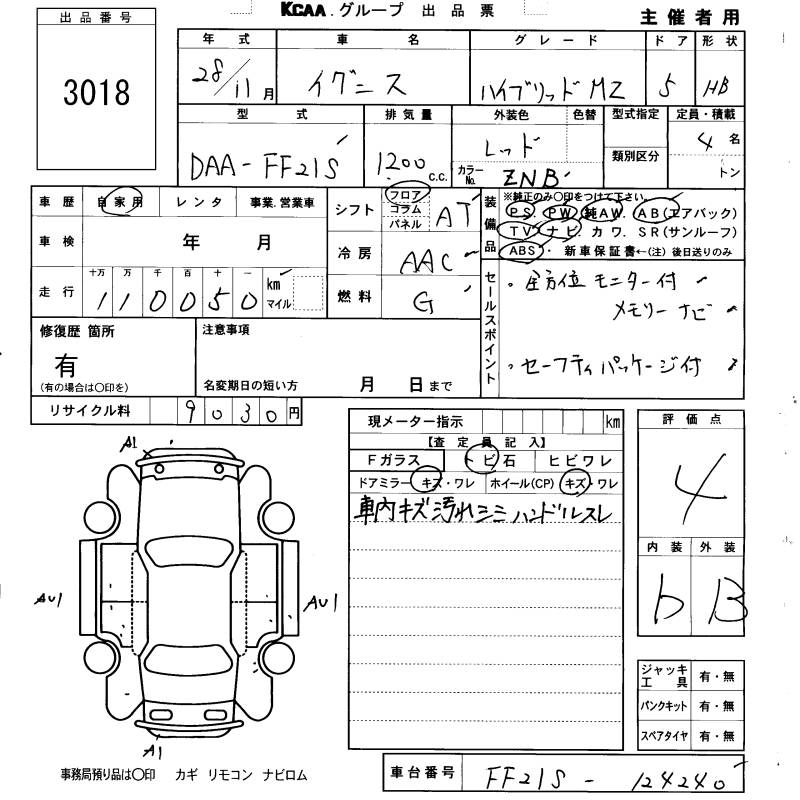 KCAA.グループ 出品票
主催者用
出品番号
3018
年式 車名 グレード ドア 形状
28/11月 イグニス ハイブリッドMZ 5 HB
型式 排気量 外装色 色替 型式指定 定員・積載
DAA-FF21S 1200c.c. レッド 類別区分 4名
カラーNo. ZNB トン
車歴 自家用 レンタ 事業.営業車
車検 年 月
走行 十万 万 千 百 十 一
110050 km マイル
シフト フロア コラム パネル AT
冷房 AAC
燃料 G
装備品 ※純正のみ○印をつけて下さい。
PS PW 純AW. AB(エアバック)
TV ナビ. カワ. SR(サンルーフ)
ABS・新車保証書←(注)後日送りのみ
セールスポイント
・全方位モニター付
メモリーナビ
・セーフティパッケージ付
修復歴 箇所
有
(有の場合は○印を)
注意事項
名変期日の短い方 月 日まで
リサイクル料 9030円
現メーター指示 km
【査定員記入】
Fガラス トビ石 ヒビワレ
ドアミラー キズ・ワレ ホイール(CP) キズ・ワレ
車内キズ汚れシミハンドルスレ
評価点
4
内装 外装
b B
A1
AU1 AU1
A1
ジャッキ工具 有・無
パンクキット 有・無
スペアタイヤ 有・無
事務局預り品は○印 カギ リモコン ナビロム
車台番号 FF21S - 124240